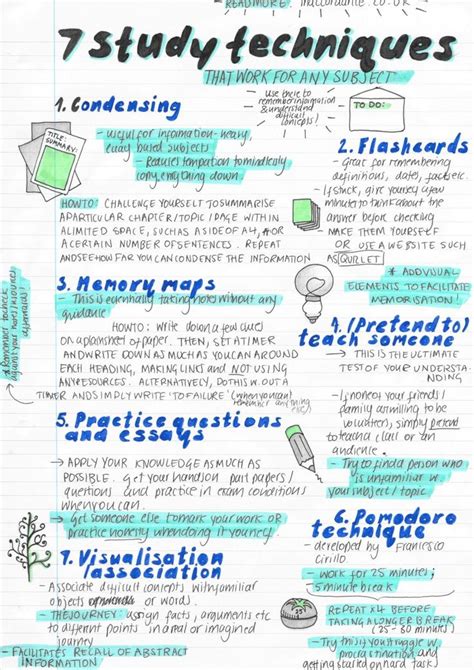 READ MORE:
7 study techniques
THAT WORK FOR ANY SUBJECT
use these to
remember information
& understand
difficult
concepts!
TO DO:
1. Condensing
TITLE:
SUMMARY:
- useful for information-heavy,
essay based subjects
- Reduces temptation to mindlessly
copy everything down.
HOW TO: CHALLENGE YOURSELF TO SUMMARISE
A PARTICULAR CHAPTER/TOPIC/PAGE WITHIN
A LIMITED SPACE, SUCH AS A SIDE OF A4, OR
A CERTAIN NUMBER OF SENTENCES. REPEAT
AND SEE HOW FAR YOU CAN CONDENSE THE INFORMATION
2. Flashcards
- Great for remembering
definitions, dates, facts etc.
- If stuck, give yourself a few
minutes to think about the
answer before checking
- MAKE THEM YOURSELF
OR USE A WEBSITE SUCH
AS QUIZLET
* ADD VISUAL
ELEMENTS TO FACILITATE
MEMORISATION!
3. Memory maps
- This is essentially taking notes without any
guidance
HOW TO: Write down a few cues
on a plain sheet of paper. Then, set A timer
AND WRITE DOWN AS MUCH AS YOU CAN AROUND
EACH HEADING, MAKING LINES AND NOT USING
ANY RESOURCES. ALTERNATIVELY, DO THIS WITHOUT A
TIMER AND SIMPLY WRITE 'TO FAILURE' (when you can't
remember anything else)
* Remember to check
against your notes/resources
afterwards!
4. (Pretend to)
teach someone
→ THIS IS THE ULTIMATE
TEST OF YOUR UNDERSTA-
NDING
- If none of your friends/
family are willing to be
volunteers, simply pretend
to teach a class or an
audience.
- Try to find a person who
is unfamiliar w
your subject/topic
5. Practice questions
and essays
→ APPLY YOUR KNOWLEDGE AS MUCH AS
POSSIBLE. Get your hands on past papers/
questions and practice in exam conditions
when you can.
→ Get someone else to mark your work OR
practice honestly when doing it yourself.
6. Pomodoro
technique
- developed by Francesco
Cirillo
- work for 25 minutes;
5 minute break
REPEAT X4 BEFORE
TAKING A LONGER BREAK
- Try this if you struggle w
procrastination and
getting
7. Visualisation
/association
- Associate difficult concepts w familiar
objects or words.
- THE JOURNEY: assign facts, arguments etc
to different points in a real or imagined
journey
- FACILITATES RECALL OF ABSTRACT
INFORMATION